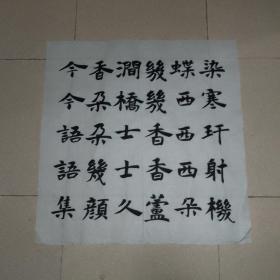 染寒玕射機
蝶西西西朵
幾幾香香蘆
澗橋士士久
香朵朵幾顏
今今語語集